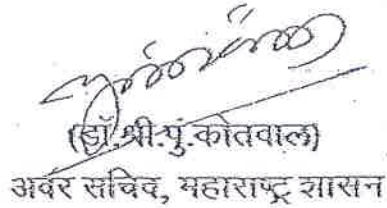 (डॉ.श्री.पु.कोतवाल)
अवर सचिव, महाराष्ट्र शासन